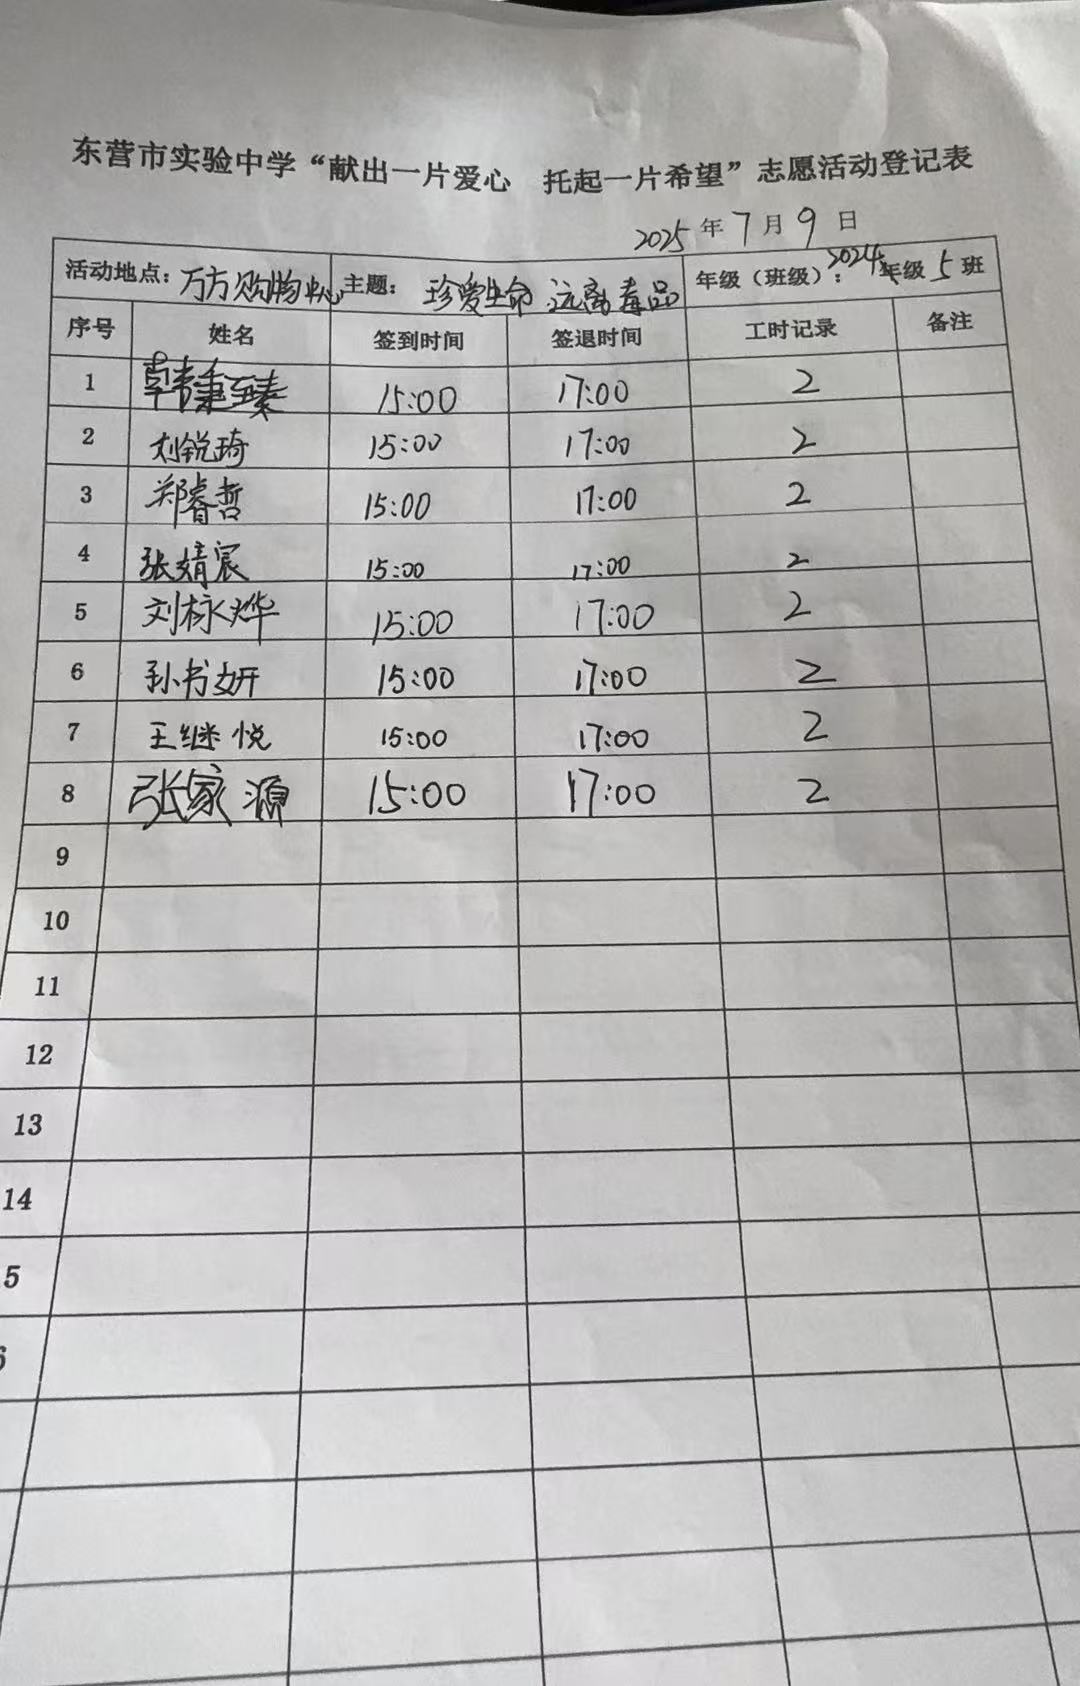 东营市实验中学“献出一片爱心 托起一片希望”志愿活动登记表
2025年7月9日
活动地点：万方购物中心 主题：珍爱生命 远离毒品 年级（班级）：2024年级5班
序号 姓名 签到时间 签退时间 工时记录 备注
1 韩秉臻 15:00 17:00 2
2 刘锐琦 15:00 17:00 2
3 郑睿哲 15:00 17:00 2
4 张婧宸 15:00 17:00 2
5 刘栐烨 15:00 17:00 2
6 孙书妍 15:00 17:00 2
7 王继悦 15:00 17:00 2
8 张家源 15:00 17:00 2
9
10
11
12
13
14
5
6